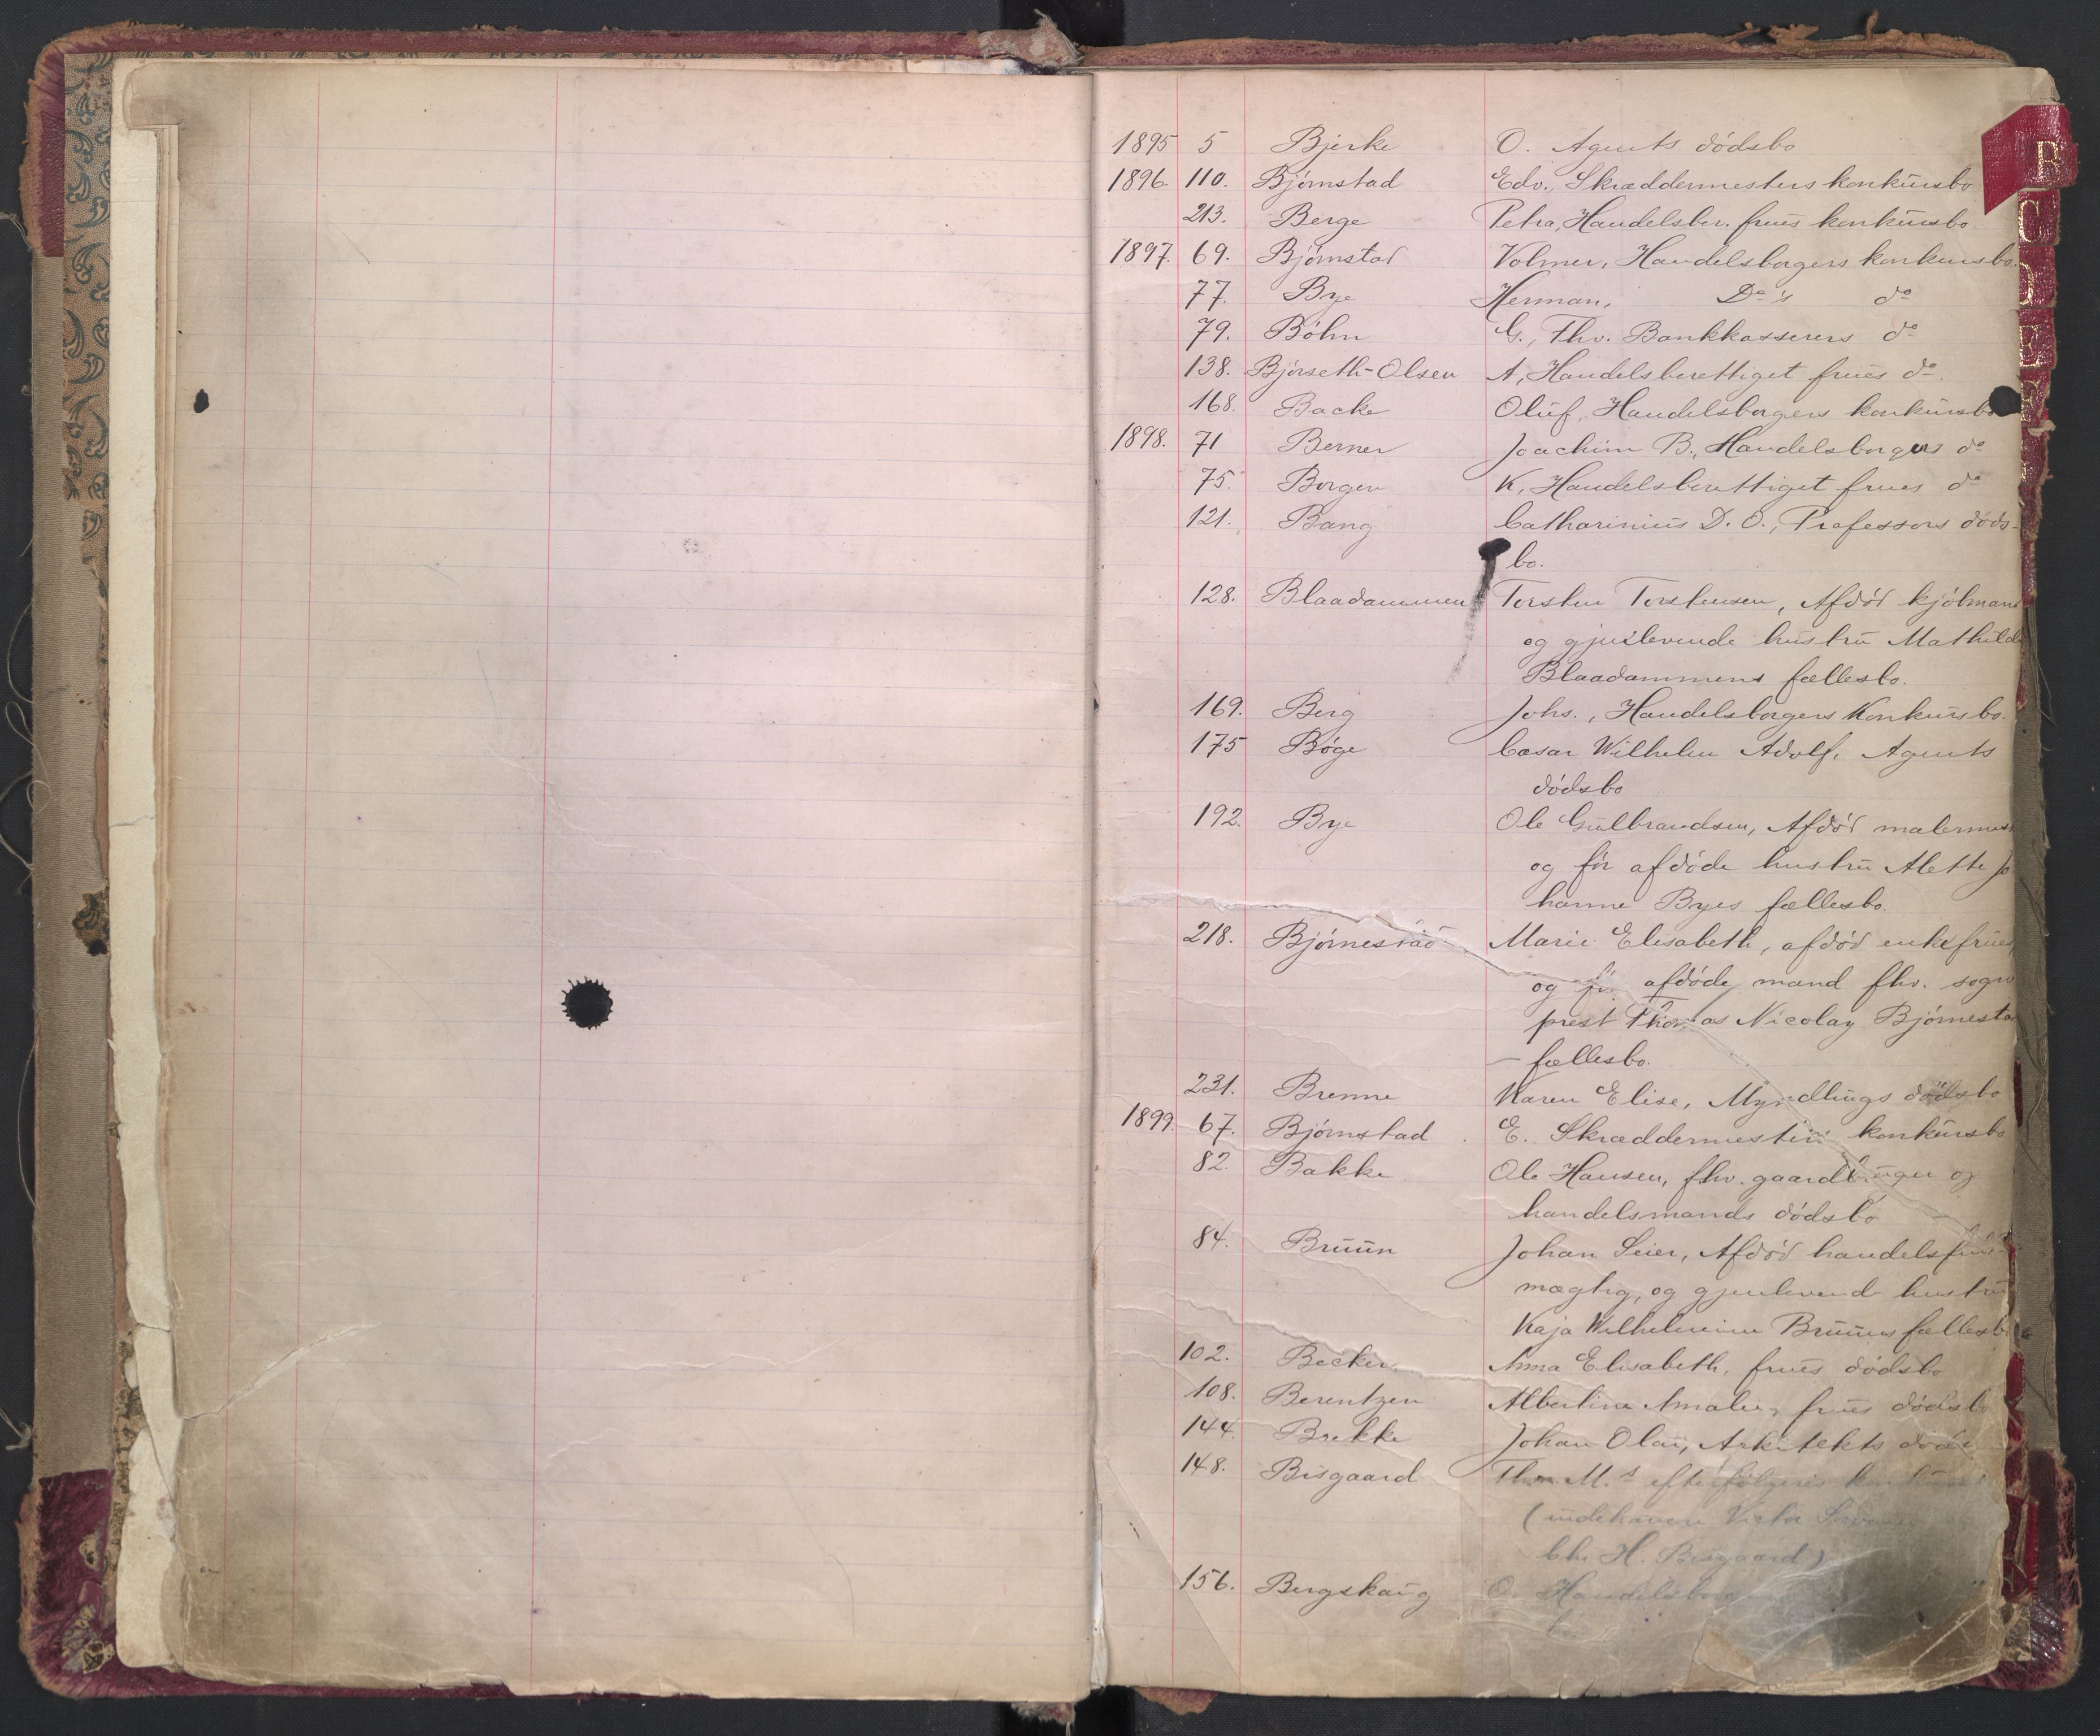 1895 5 Bjerke O. Agents dødsbo
1896. 110. Bjørnstad Edv., Skræddermesters konkursbo
213. Berge Petra, Handelsber. frues konkursbo
1897. 69. Bjørnstad Volmer, Handelsborgers konkursbo.
77. Bye Herman, Do's do
79. Bøhn G., Fhv. Bankkasserers do
138. Bjørseth-Olsen A, Handelsberettiget frues do.
168. Backe Oluf, Handelsborgers konkursbo
1898. 71 Berner Joachim B., Handelsborgers do
75. Borgen K, Handelsberettiget frues do
121. Bang Catharinius D. O., Professors døds-
bo.
128. Blaadammen Torsten Torstensen, Afdød kjølmand
og gjenlevende hustru Mathilde
Blaadammens fællesbo.
169. Berg Johs., Handelsborgers Konkursbo.
175 Bøge Cæsar Wilhelm Adolf, Agents
dødsbo
192. Bye Ole Gulbrandsen, Afdød malermest
og før afdøde hustru Alette Jo
hanne Byes fællesbo.
218. Bjørnestad Marie Elisabeth, afdød enkefrues,
og før afdøde mand fhv. sogne
prest Thomas Nicolay Bjørnesta
– fællesbo.
231. Brenne Karen Elise, Myndlings dødsbo
1899. 67. Bjørnstad E. Skræddermesters konkursbo
82. Bakke Ole Hansen, fhv. gaardbruger og
handelsmands dødsbo
84. Bruun Johan Seier, Afdød handelsfuld
mægtig, og gjenlevend hustru
Kaja Wilhelmine Bruuns fællesbo
102. Becker Anna Elisabeth, frues dødsbo
108. Berentzen Albertine Amalie, frues dødsbo
144. Brekke Johan Olai, Arkitekts døds
148. Bisgaard Thv. M.s efterfølgeres konkurs
(indehavere Victor
Chr H. Bisgaard)
156. Bergskaug O. Handelsborg
B
C
D
E
F